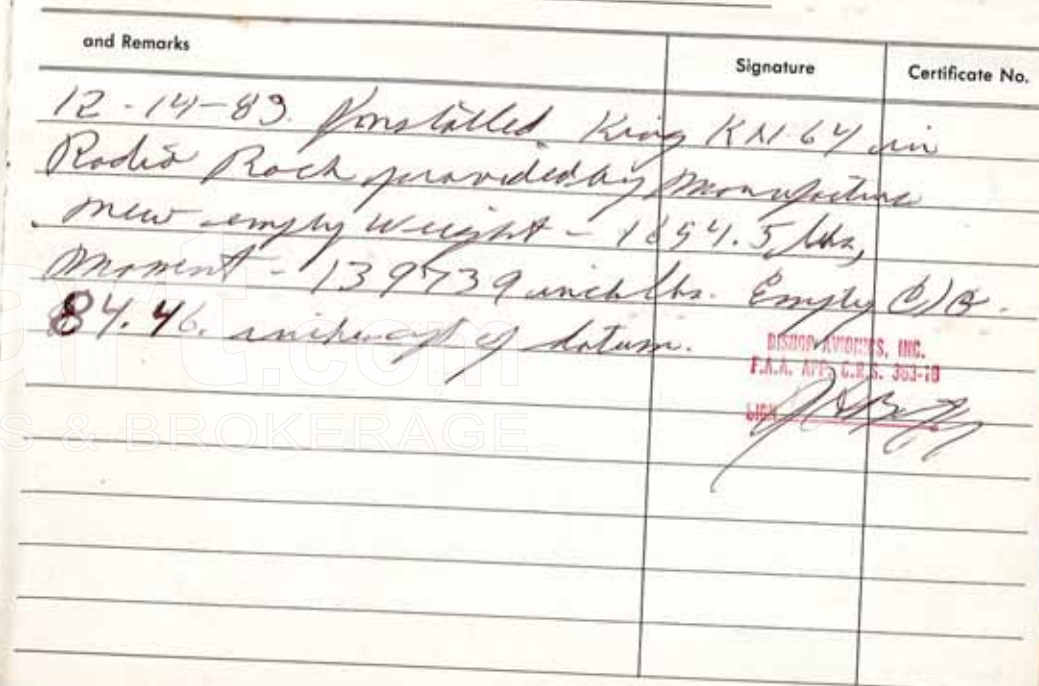 and Remarks Signature Certificate No.
12-14-83. Installed King KN 64 in
Radio Rack provided by Manufacture
new empty weight - 1654.5 lbs,
Moment - 139739 inch lbs. Empty C/G.
84.46. inches aft of datum.
BISHOP AVIONICS, INC.
F.A.A. APP. C.R.S. 363-18
art.com
S & BROKERAGE